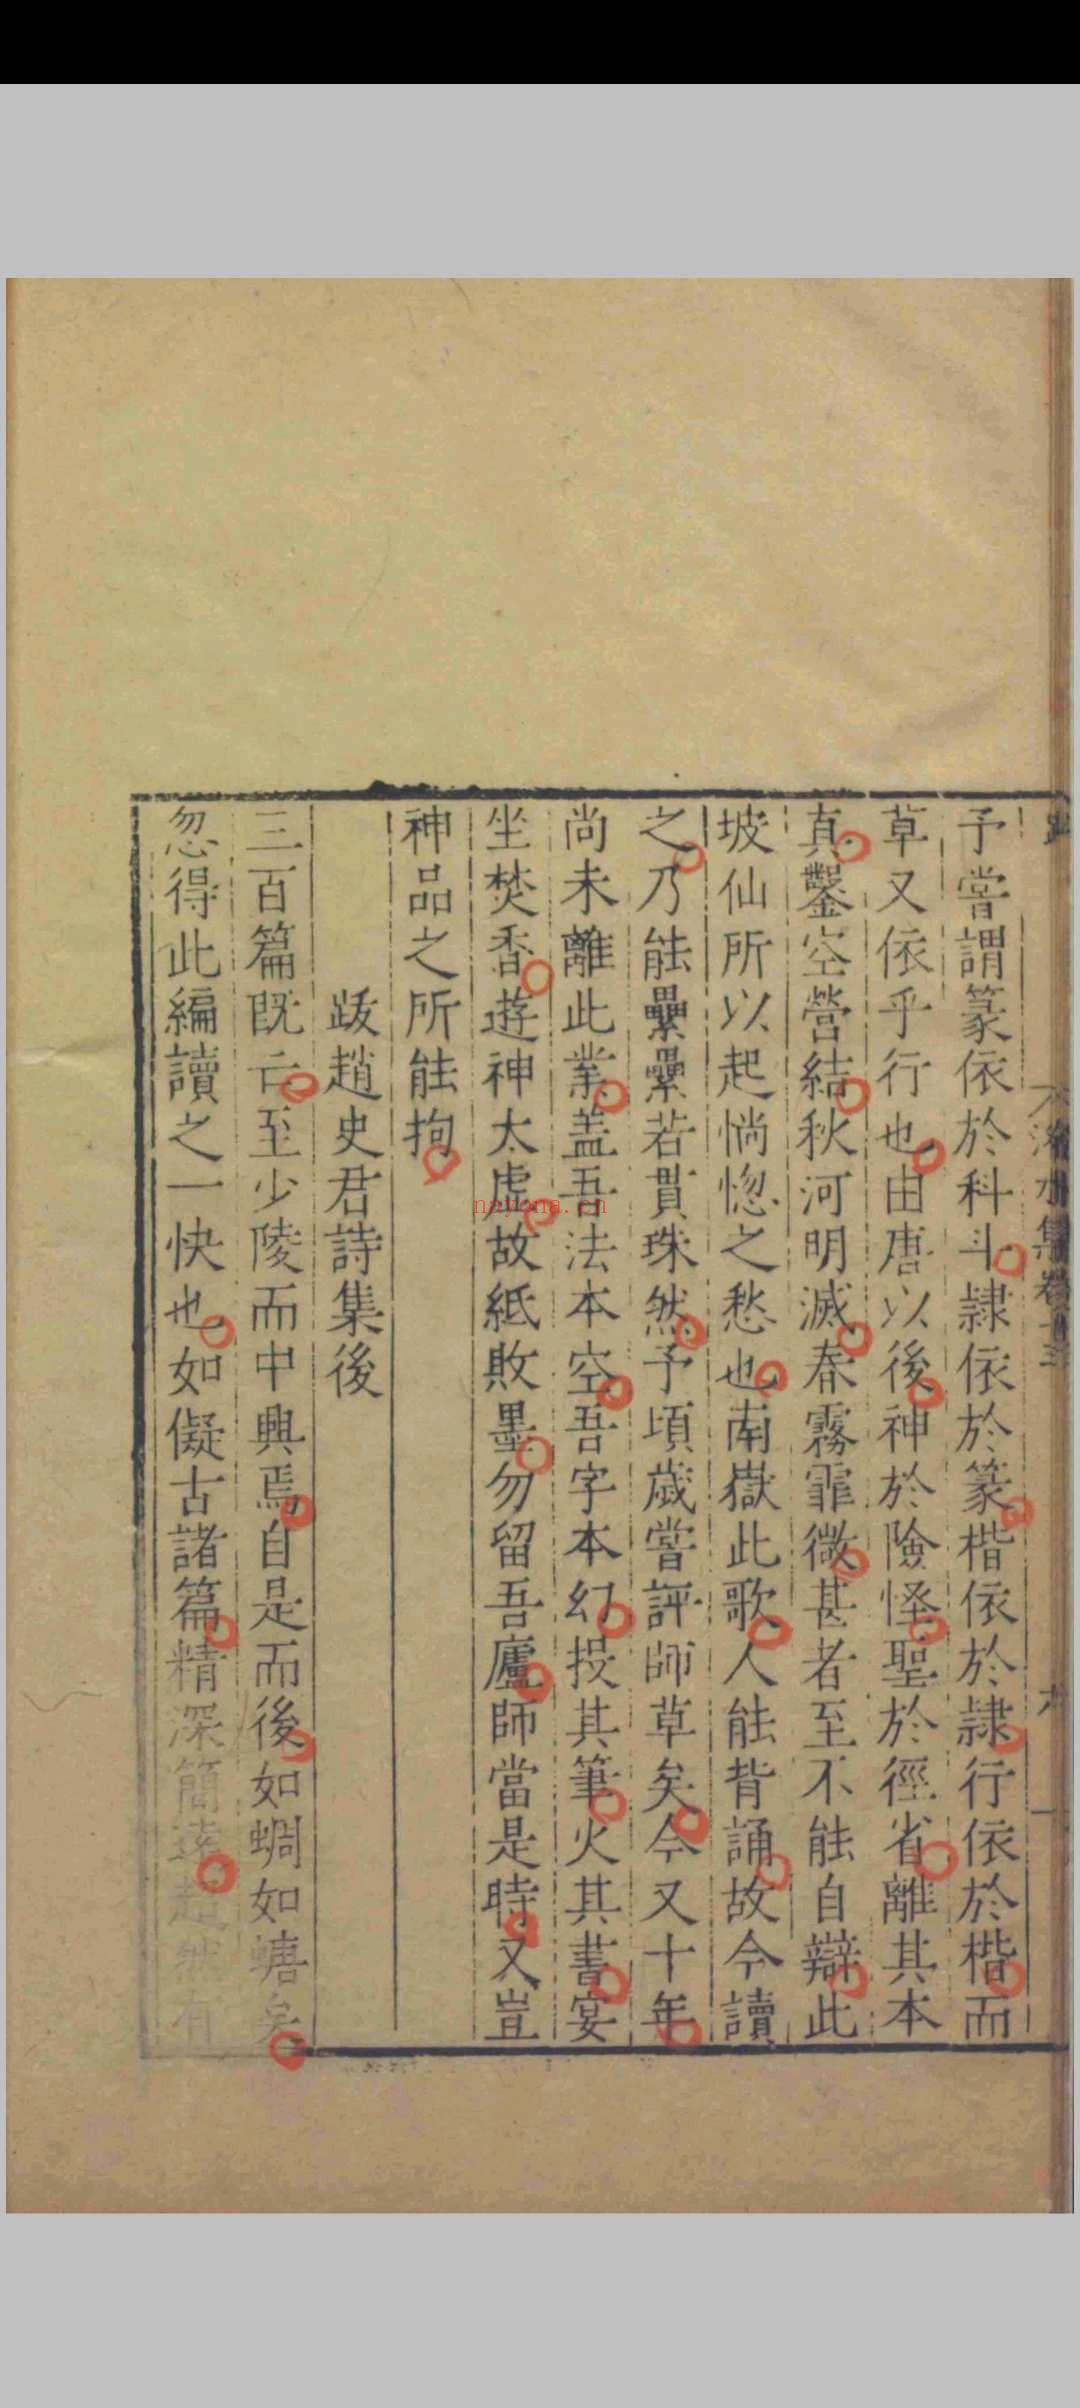 予嘗謂篆依於科斗隷依於篆楷依於隷行依於楷而
草又依乎行也由唐以後神於險怪聖於徑省離其本
真鑿空營結秋河明滅春霧霏微甚者至不能自辯此
坡仙所以起惝惚之愁也南嶽此歌人能背誦故今讀
之乃能纍纍若貫珠然予頃歲嘗評師草矣今又十年
尚未離此業盖吾法本空吾字本幻投其筆火其書宴
坐焚香遊神太虛故紙敗墨勿留吾廬師當是時又豈
神品之所能拘
跋趙史君詩集後
三百篇既亡至少陵而中興焉自是而後如蜩如螗矣
忽得此編讀之一快也如儗古諸篇精深簡遠超然有
nayona.cn